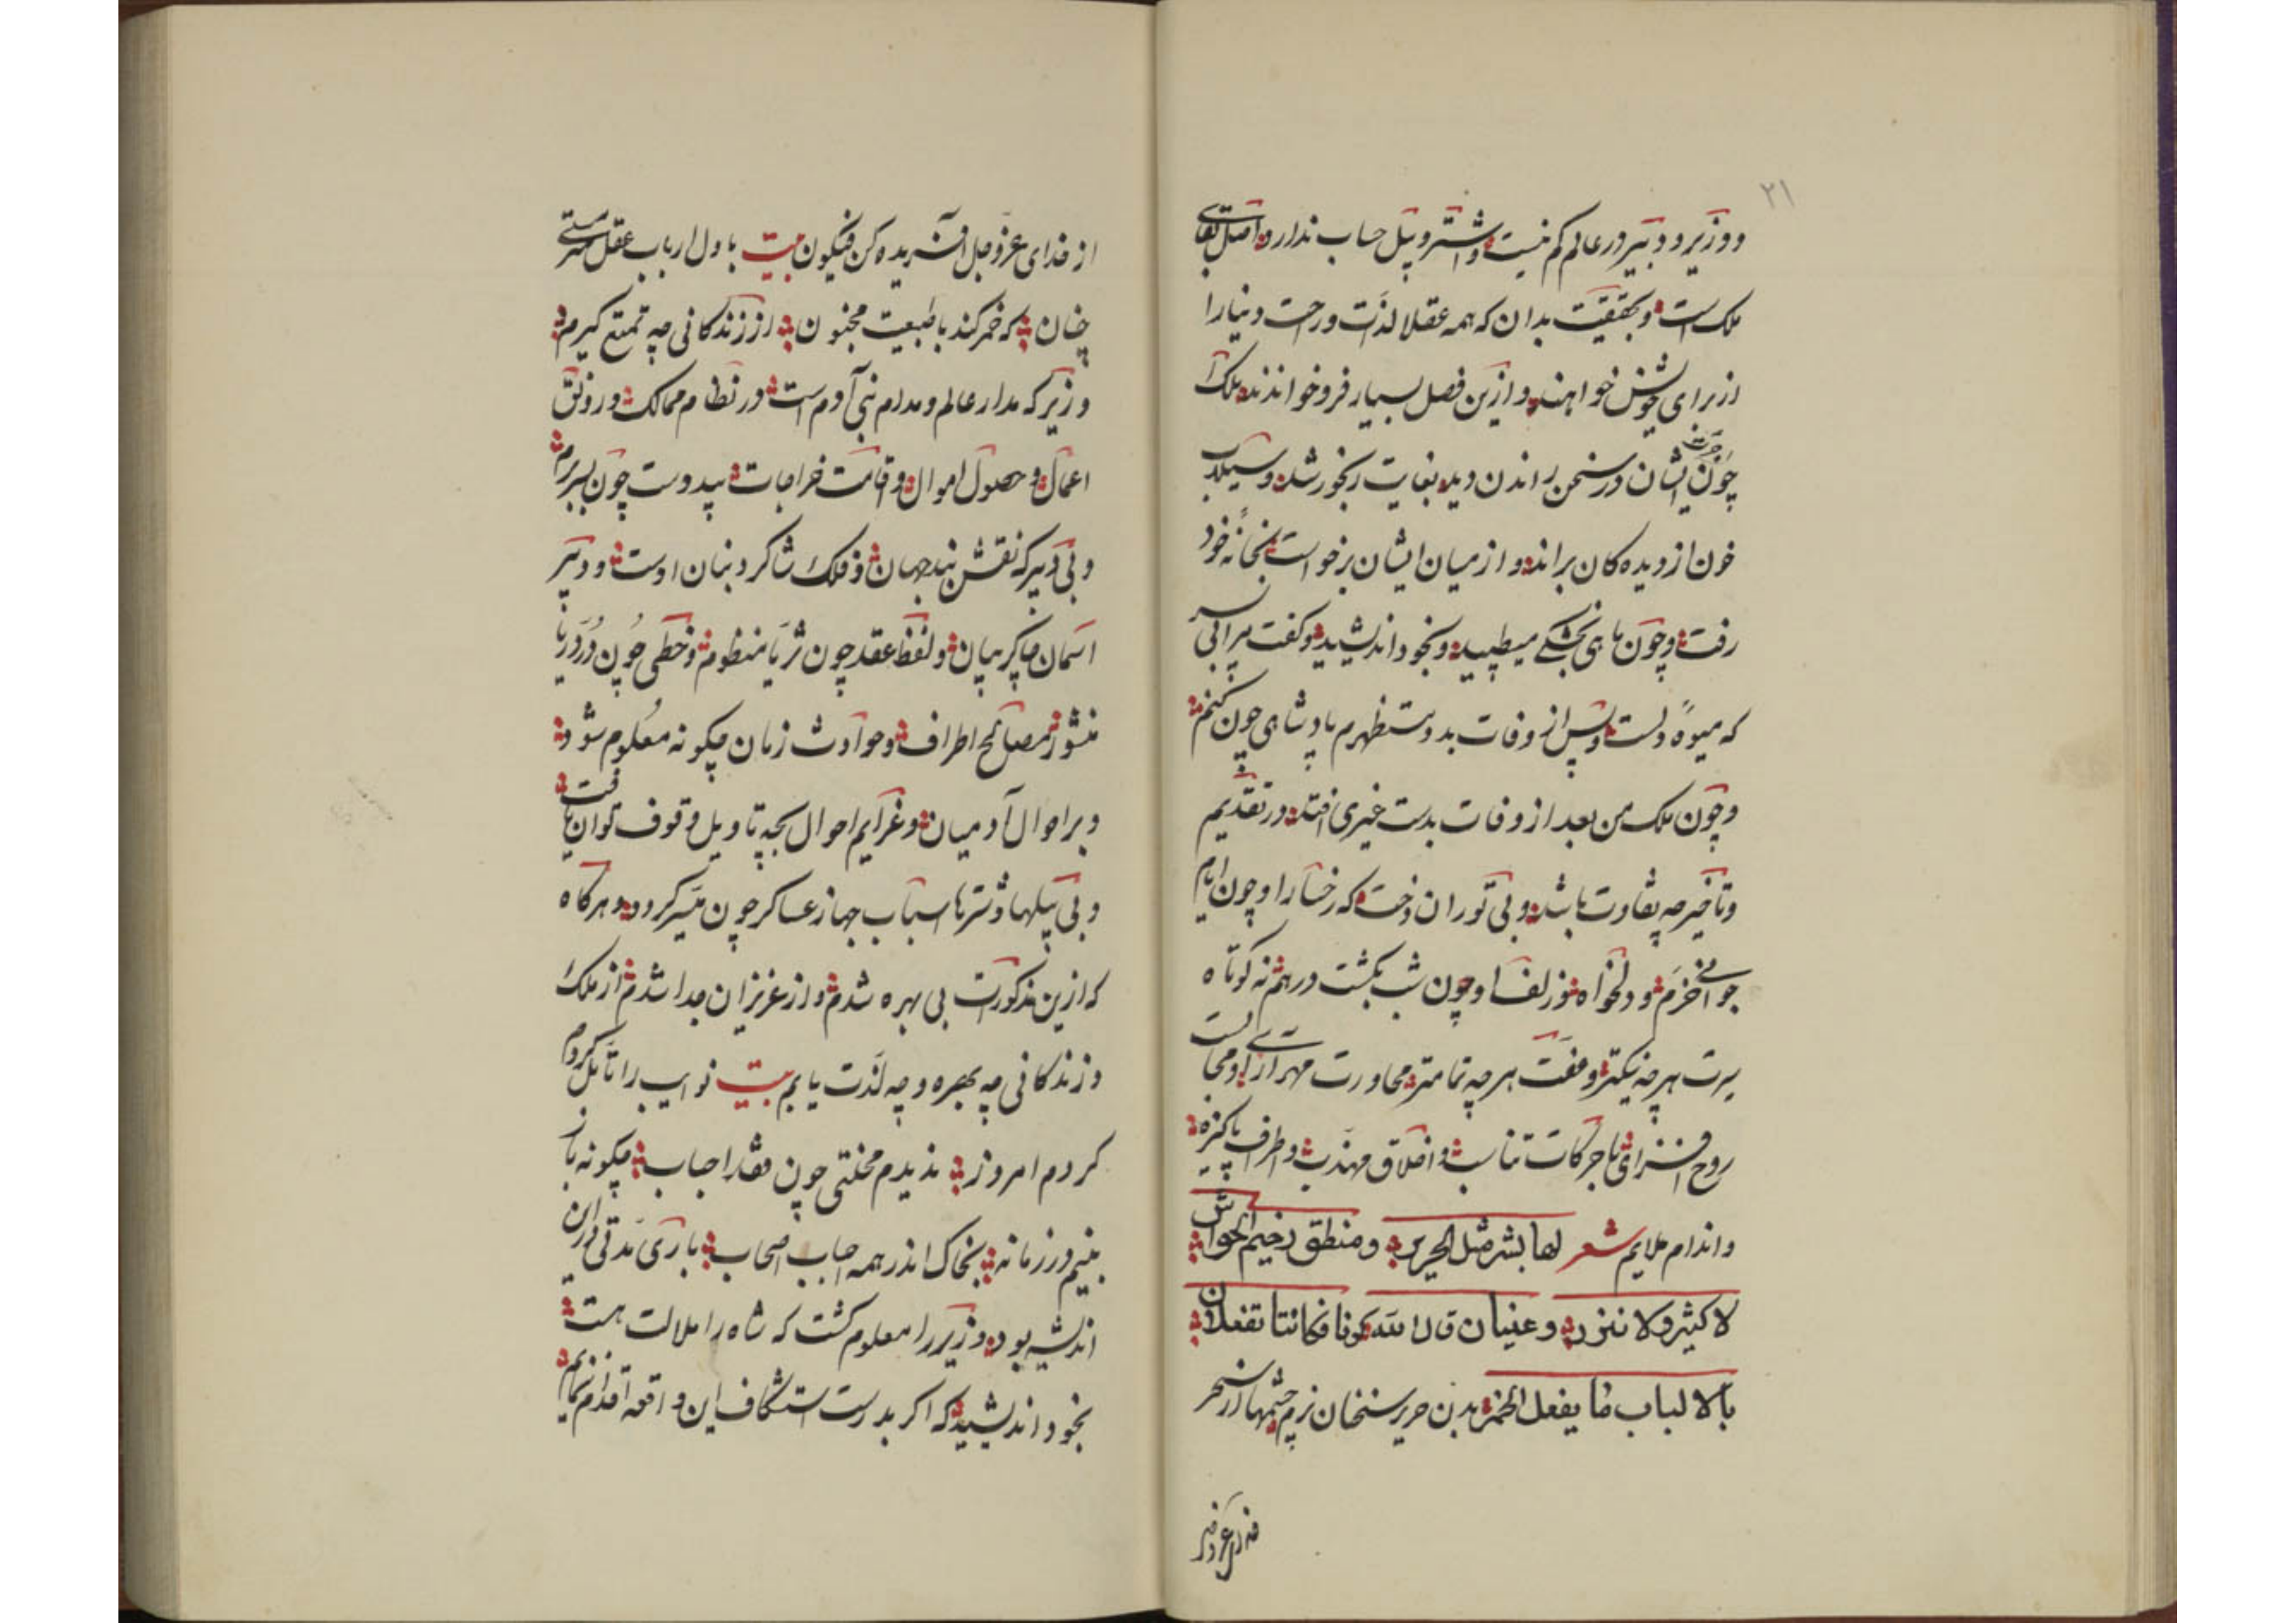 ۲۱
و وزیر و دبیر در عالم کم نیست و اشتر و پیل حساب ندارد و اصل بقای
ملک است و بحقیقت بدان که همه عقلا لذت و راحت دنیا را
از برای خویش خواهند و ازین فصل بسیار فرو خواندند ملک
چون ایشان در سخن راندن دید بغایت رنجور شد و سیلاب
خون از دیدکان براند و از میان ایشان برخواست بخانه خود
رفت و چون ماهی بخشکی میطپید و بخود اندیشید و کفت مرا بی پسر
که میوه دلست و پس از وفات بدو مستظهرم پادشاهی چون کنم
و چون ملک من بعد از وفات بدست غیری افتد در تقدیم
و تأخیر چه تفاوت باشد و بی توران دخت که رخسار او چون ایام
جوانی خرم و دلخواه و زلف او چون شب بکشت درهم نه کوتاه
سیرت هرچه نیکتر و عفت هرچه تمامتر محاورت مهرآرای او مجالست
روح افزای با حرکات متناسب و اخلاق مهذب و اطراف پاکیزه
و اندام ملایم شعر لها بشر مثل الحریر و منطق رخیم الحواش
لا کثیر ولا نزر و عینان قال الله کونا فکانتا تفعلان
بالالباب ما یفعل الخمر بدن حریر سخنان نرم چشمها در سحر
از خدای عز و جل افریده کن فیکون بیت با دل ارباب عقل مستی
چنان که خمر کند با طبیعت مجنون از زندکانی چه تمتع کیرم
وزیر که مدار عالم و مدام بنی آدم است در نظام ممالک و رونق
اعمال و حصول اموال و اقامت خراجات بیدوست چون بسربرم
و بی دبیر که نقش بند جهان و فلک شاکرد بنان اوست و دبیر
اسمان چاکر بیان و لفظ عقد چون ثریا منظوم و خطی چون در دریا
منثور مصالح اطراف و حوادث زمان چکونه معلوم شود
و بر احوال آدمیان و غرایم احوال بچه تاویل وقوف توان یافت
و بی پیلها و شترها اسباب جهاز عساکر چون میسر کردد و هرکاه
که ازین مذکورات بی بهره شدم و از عزیزان جدا شدم از ملک
و زندکانی چه بهره و چه لذت یابم بیت نوایب را تأمل کردم
کردم امروز ندیدم محنتی چون فقد احباب چکونه باز
بینم در زمانه بخاک اندر همه احباب اصحاب باری مدتی در این
اندیشه بود وزیر را معلوم کشت که شاه را ملالت هست
بخود اندیشید که اکر بدرست استکشاف این واقعه اقدام نمایم